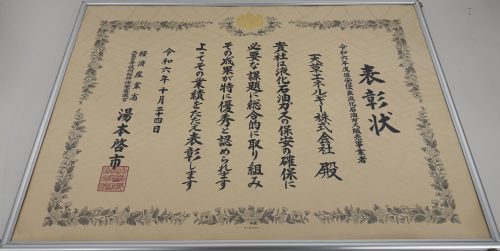 表彰状
令和六年度保安優良液化石油ガス販売事業者
天草エネルギー株式会社 殿
貴社は液化石油ガスの保安の確保に
必要な課題に総合的に取り組み
その成果が特に優秀と認められます
よってその業績をたたえ表彰します
令和六年十月二十四日
経済産業省
湯本啓市